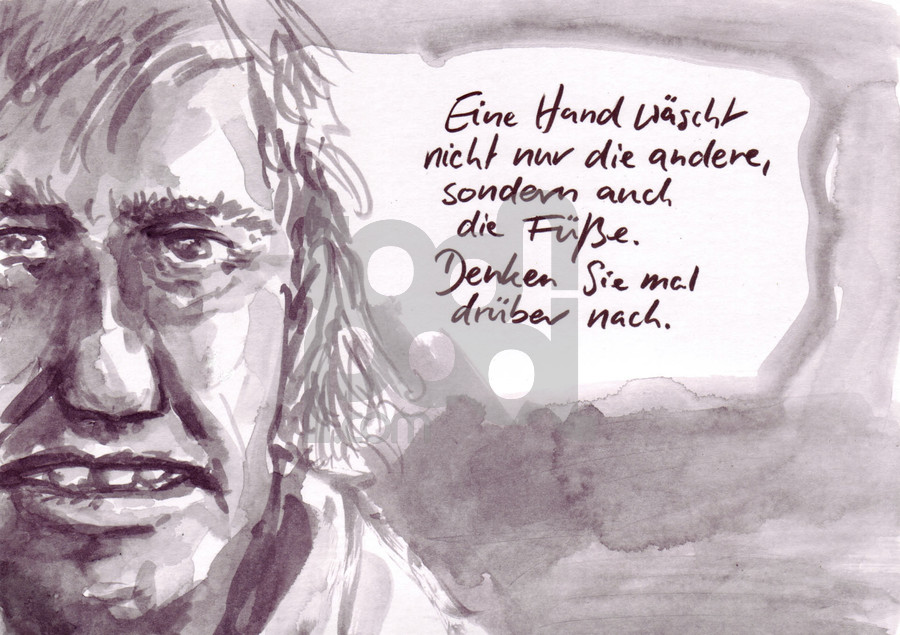 Eine Hand wäscht
nicht nur die andere,
sondern auch
die Füße.
Denken Sie mal
drüber nach.